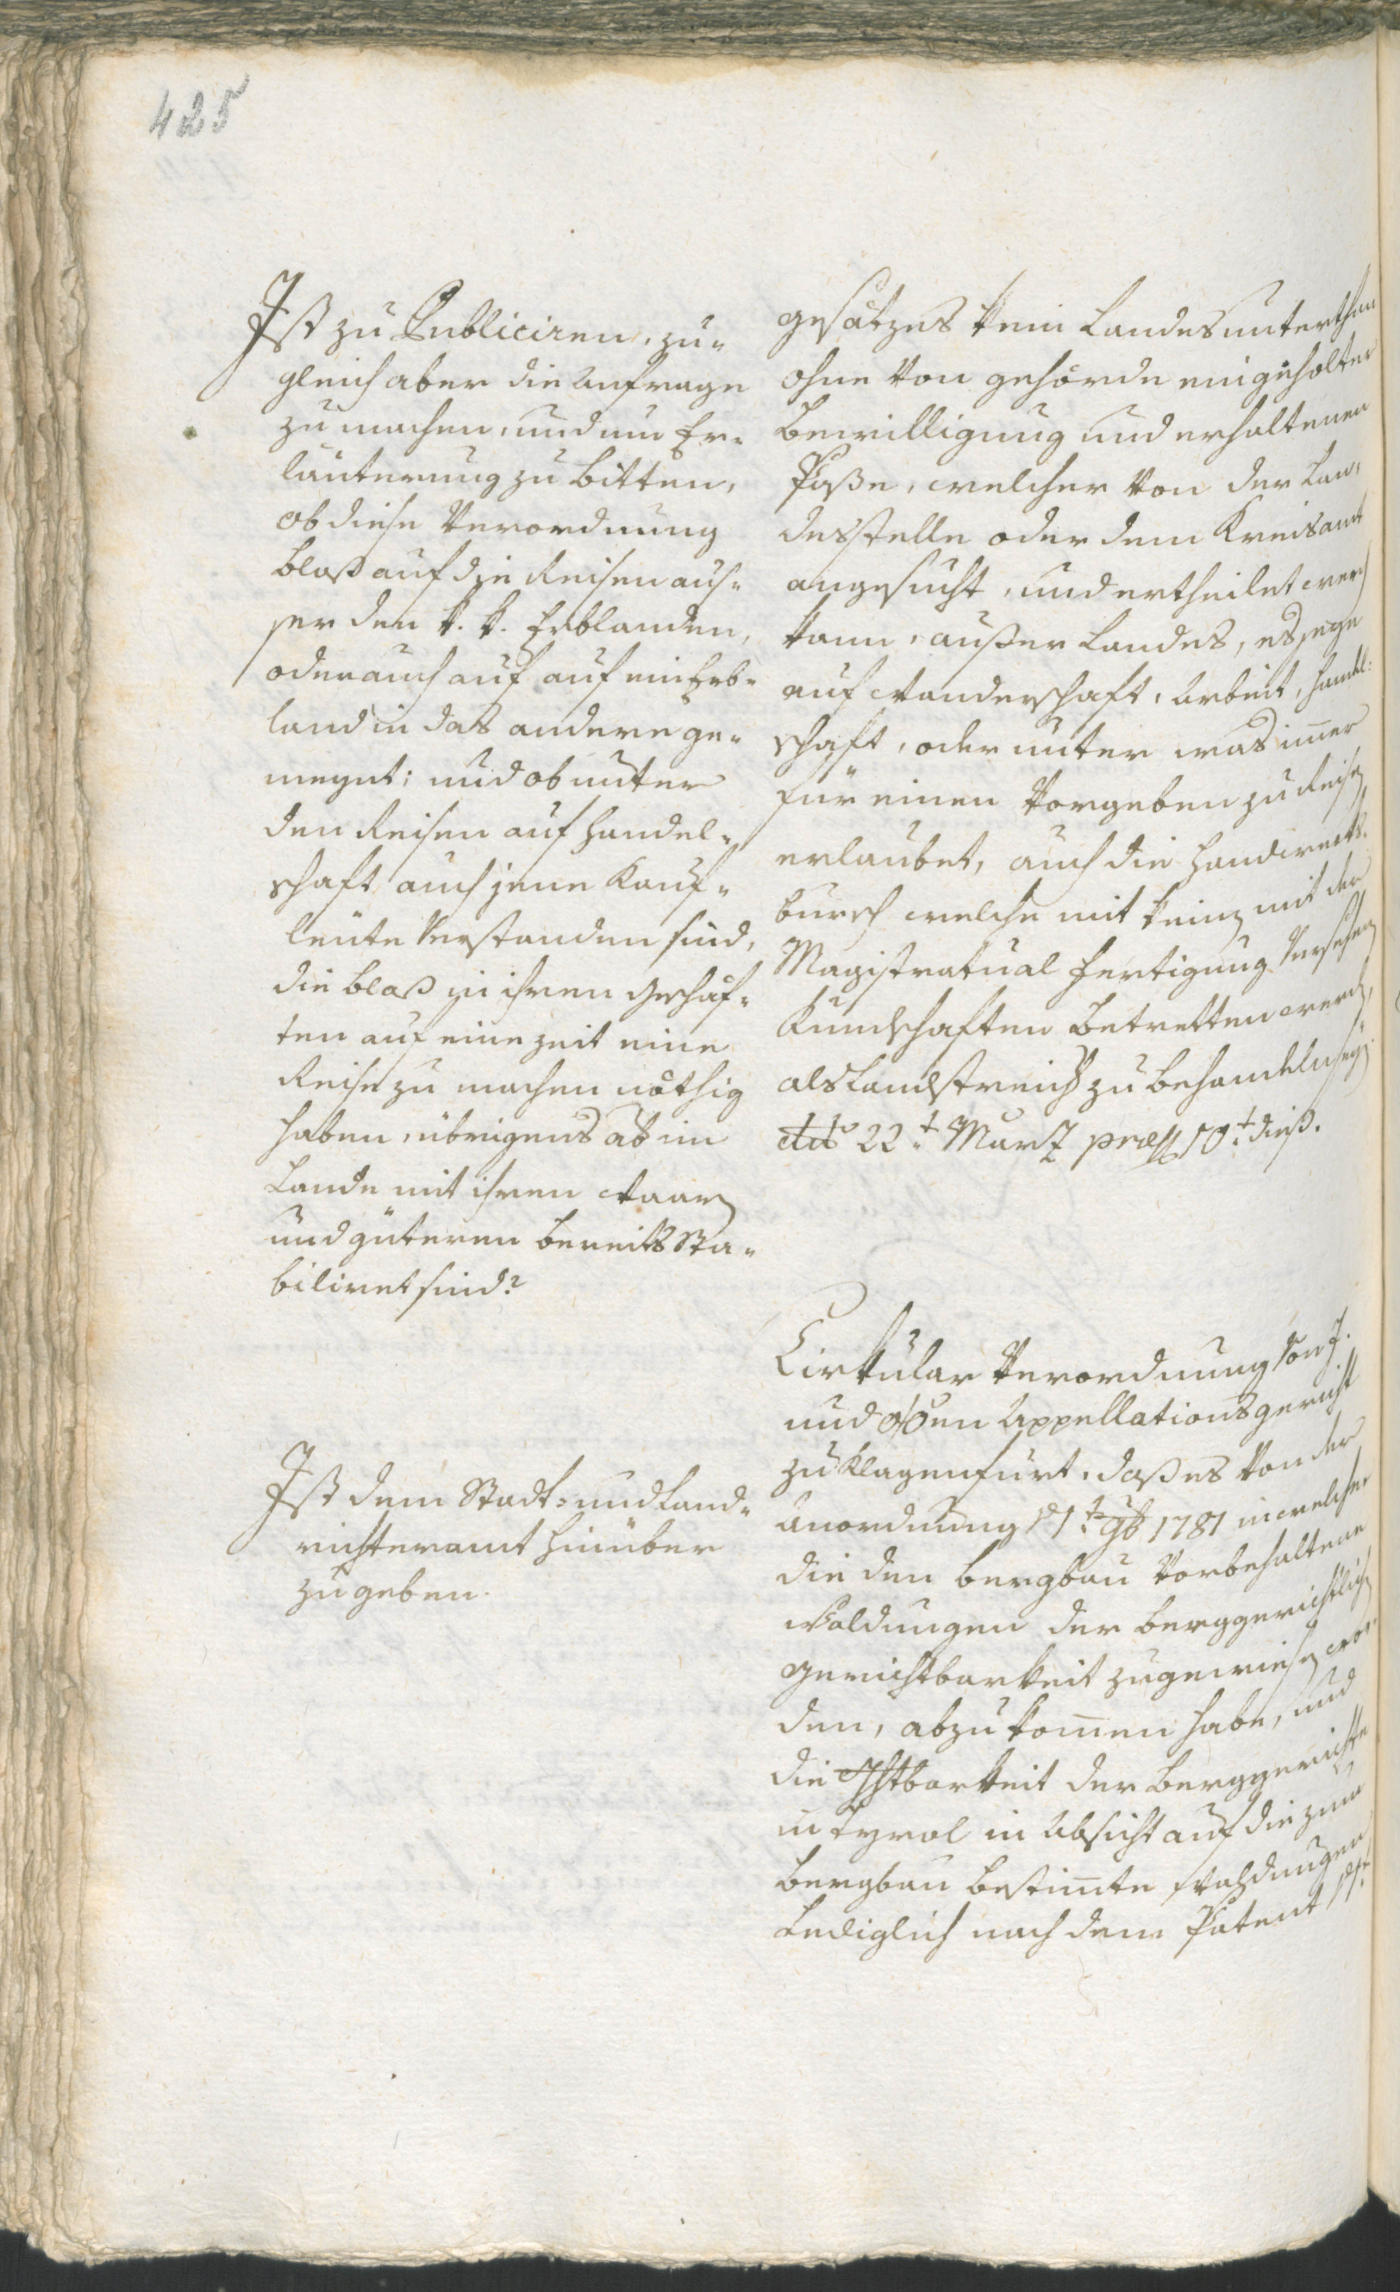 425
Ist zu Publiciren, zu-
gleich aber die Anfrage
zu machen, und um Er-
läuterung zu bitten,
ob diese Verordnung
blos auf die Reisen aus-
ser den k. k. Erblanden,
oder auch auf auf ein Erb-
land in das andere ge-
meynt; und ob unter
den Reisen auf handel-
schaft auch jene Kauf-
leüte verstanden sind,
die blos in ihren Geschäf-
ten auf eine zeit eine
Reise zu machen nöthig
haben, übrigens ab im
Lande mit ihren Waaren
und güteren bereits sta-
biliret sind?
Ist dem Stadt- und Land-
richteramt hinüber
zu geben.
gesätzes kein Landesunterthan
ohne von gehörde eingeholter
Bewilligung und erhaltenen
Paße, welcher von der Lan-
desstelle oder dem Kreisamt
angesucht, und ertheilet werden
kann, außer Landes, es seye
auf Wanderschaft, Arbeit, handel-
schaft, oder unter was imer
für einen Vorgeben zu Reisen
erlaubet, auch die handwerks-
bursch welche mit keinen mit der
Magistratual Fertigung versehen
Kundschaften betretten werden,
als Landstreicher zu behandeln seyn
dto 22t Marz præs 10t dieß.
Cirkular Verordnung von J.
und oöen Appellationsgericht
zu Klagenfurt, daß es von der
Anordnung 1781 in welcher
die den bergbau vorbehaltene
Waldungen der berggerichtlichen
gerichtbarkeit zugewiesen wor-
den, abzukomen habe, und
die Ghtbarkeit der Berggerichte
in Tyrol in Absicht auf die zum
bergbau bestimte Waldungen
lediglich nach dem Patent